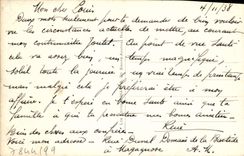 Mon cher Louis 4/11/38
Deux mots seulement pour te demander de bien vouloir
vu les circonstances actuelles de mettre au courant
mon Au point de vue santé
cela va assez bien, un temps magnifique,
soleil toute la journée, un vrai temps de printemps
mais malgré cela je préfèrerai être à mon
affaire. Je t'espère en bonne santé ainsi que ta
famille à qui tu penseras mes bonnes amitiés
Bien des choses aux confrères René
Voici mon adresse = René Duval Domaine de la Bastide
à Magagnosc A.M.